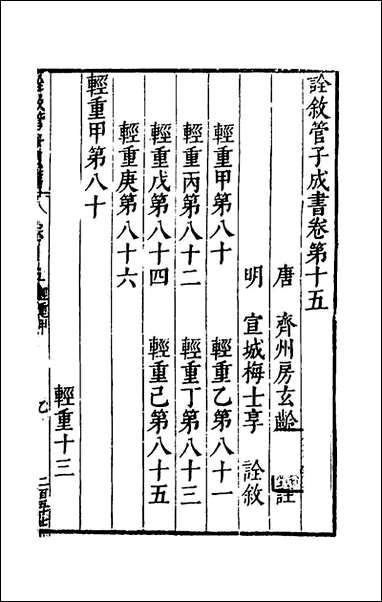 詮敘管子成書卷第十五
唐 齊州房玄齡 註
明 宣城梅士享 詮敘
輕重甲第八十 輕重乙第八十一
輕重丙第八十二 輕重丁第八十三
輕重戊第八十四 輕重己第八十五
輕重庚第八十六
輕重甲第八十
輕重十三